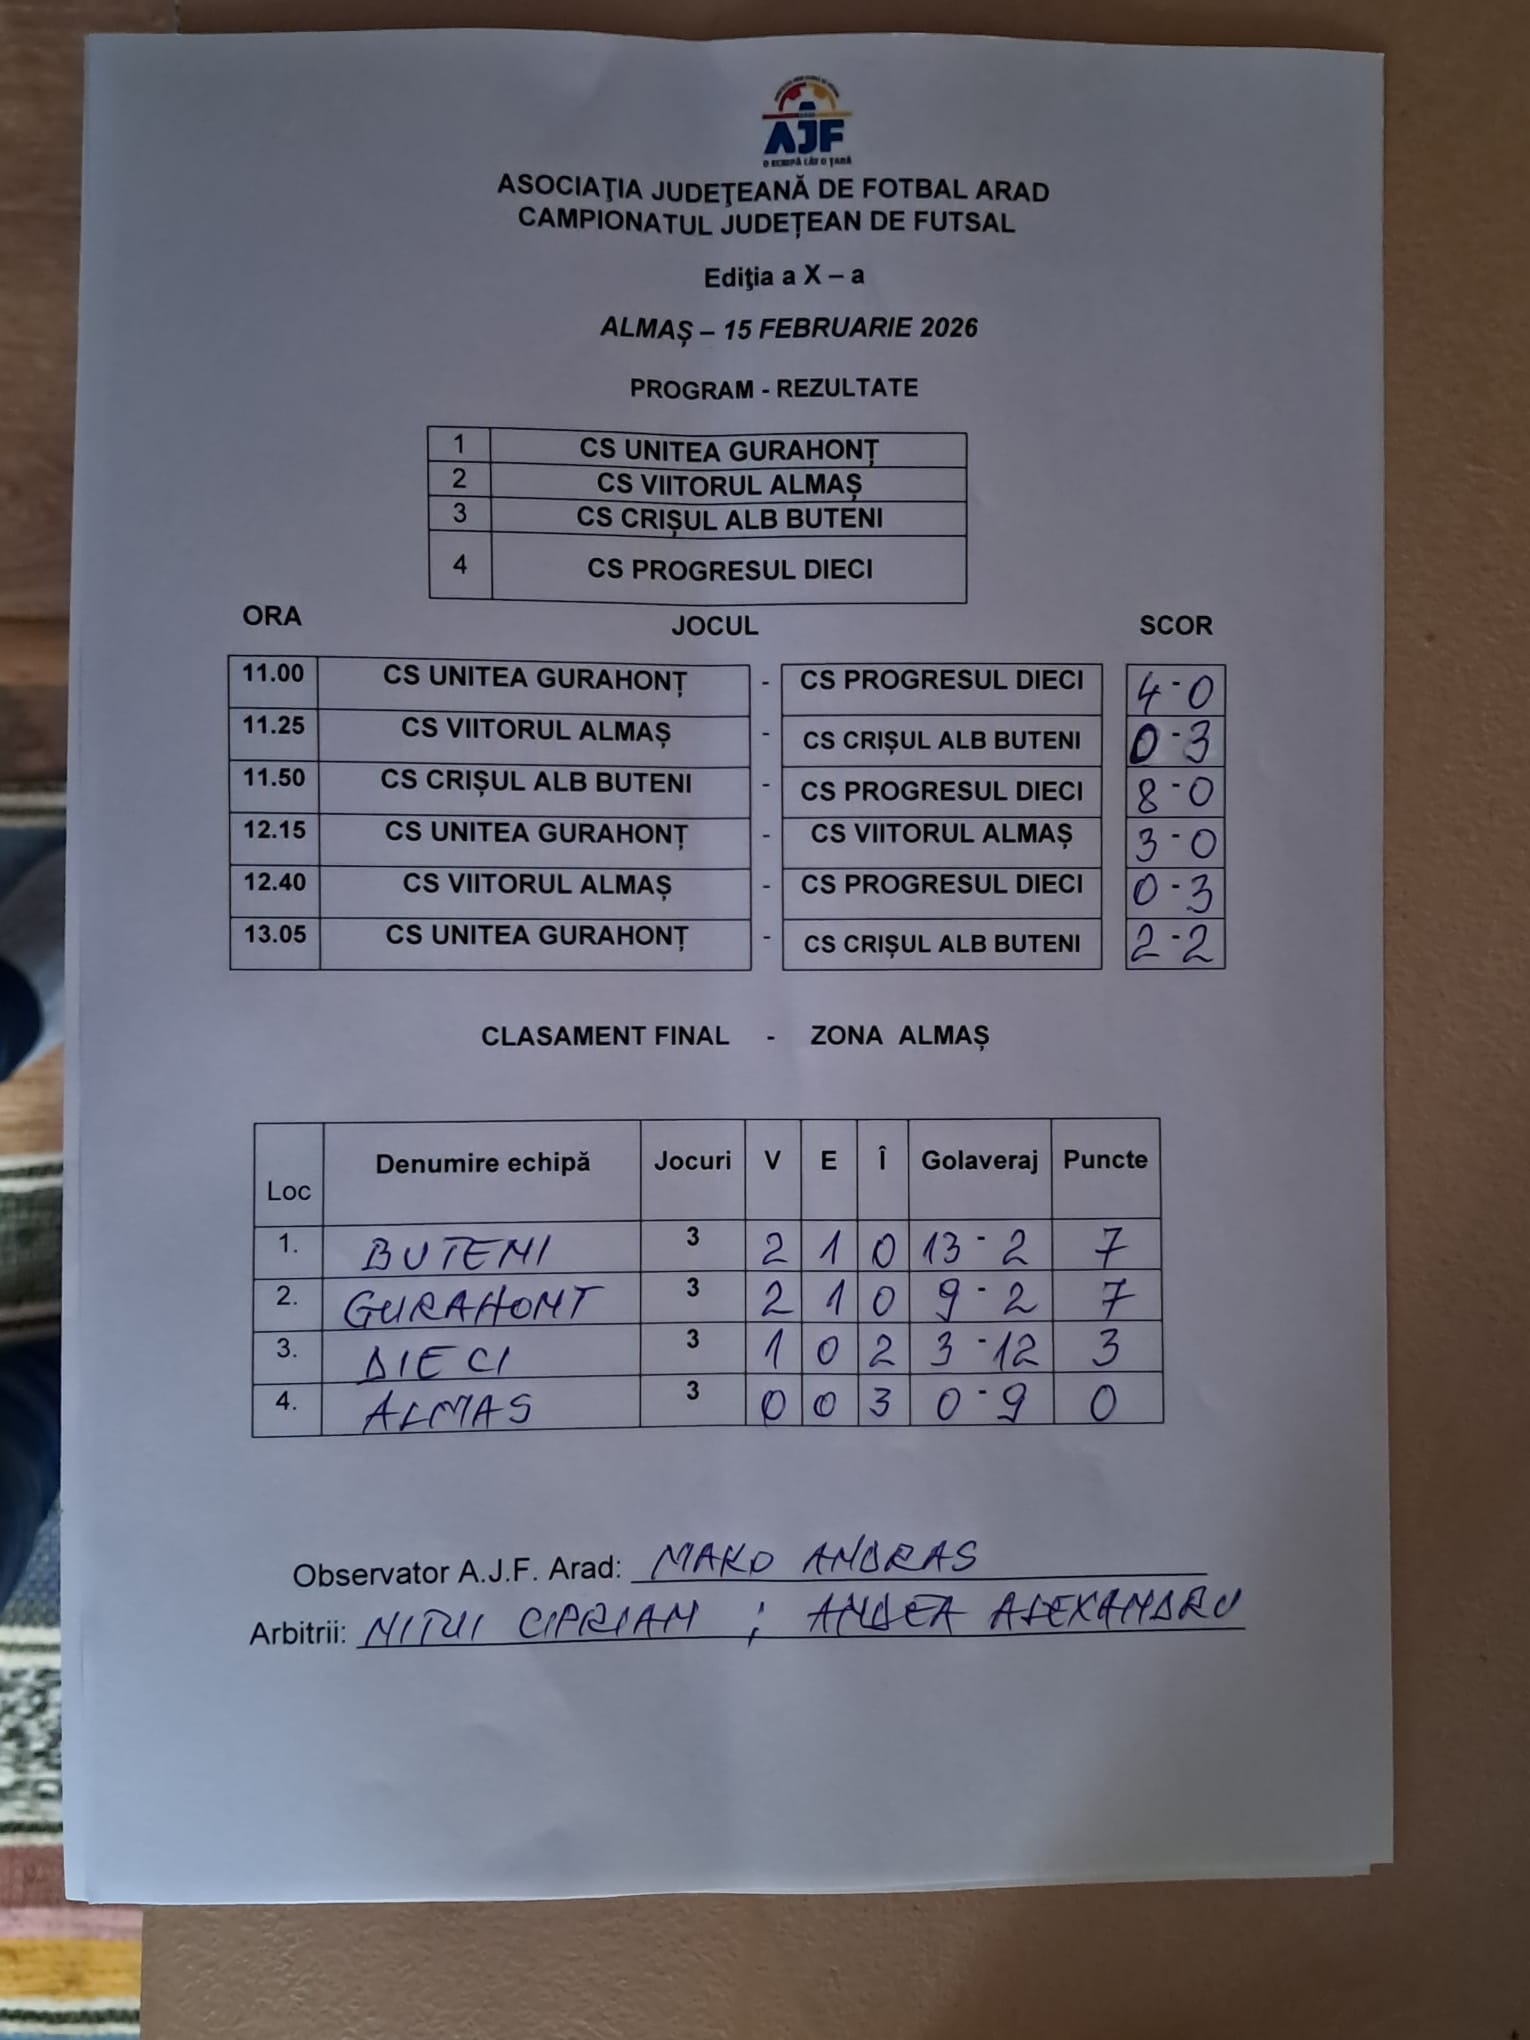 AJF
O ECHIPĂ CÂT O ȚARĂ
ASOCIAŢIA JUDEŢEANĂ DE FOTBAL ARAD
CAMPIONATUL JUDEȚEAN DE FUTSAL
Ediţia a X – a
ALMAȘ – 15 FEBRUARIE 2026
PROGRAM - REZULTATE
1 CS UNITEA GURAHONȚ
2 CS VIITORUL ALMAȘ
3 CS CRIȘUL ALB BUTENI
4 CS PROGRESUL DIECI
ORA JOCUL SCOR
11.00 CS UNITEA GURAHONȚ - CS PROGRESUL DIECI 4-0
11.25 CS VIITORUL ALMAȘ - CS CRIȘUL ALB BUTENI 0-3
11.50 CS CRIȘUL ALB BUTENI - CS PROGRESUL DIECI 8-0
12.15 CS UNITEA GURAHONȚ - CS VIITORUL ALMAȘ 3-0
12.40 CS VIITORUL ALMAȘ - CS PROGRESUL DIECI 0-3
13.05 CS UNITEA GURAHONȚ - CS CRIȘUL ALB BUTENI 2-2
CLASAMENT FINAL - ZONA ALMAȘ
Loc Denumire echipă Jocuri V E Î Golaveraj Puncte
1. BUTENI 3 2 1 0 13-2 7
2. GURAHONT 3 2 1 0 9-2 7
3. DIECI 3 1 0 2 3-12 3
4. ALMAS 3 0 0 3 0-9 0
Observator A.J.F. Arad: MAKO ANDRAS
Arbitrii: NITUI CIPRIAN ; ANDEA ALEXANDRU